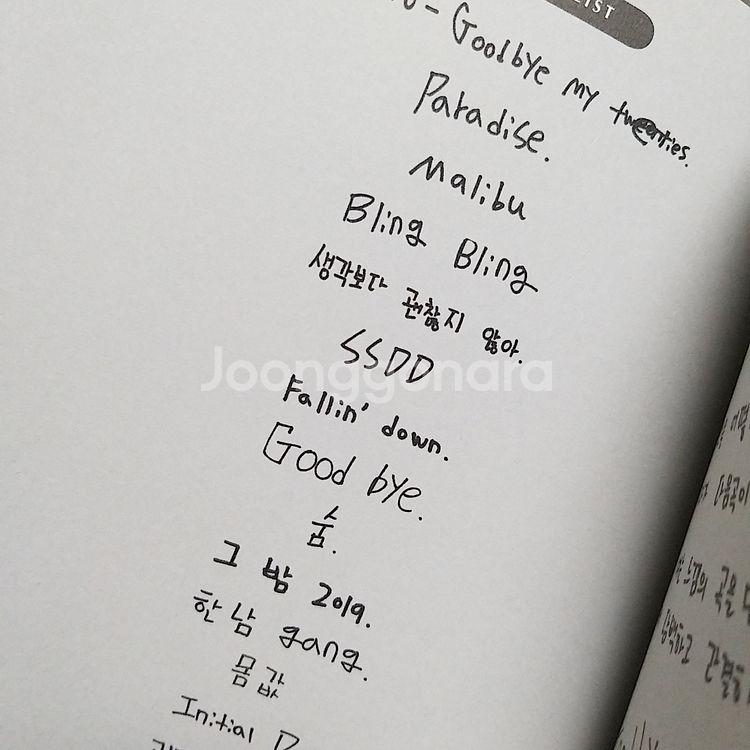 LIST
- Goodbye my tweenties.
Paradise.
Malibu
Bling Bling
생각보다 괜찮지 않아.
SSDD
Fallin' down.
Good bye.
숨.
그 밤 2019.
한남 gang.
몸값
Initial
Joonggonara